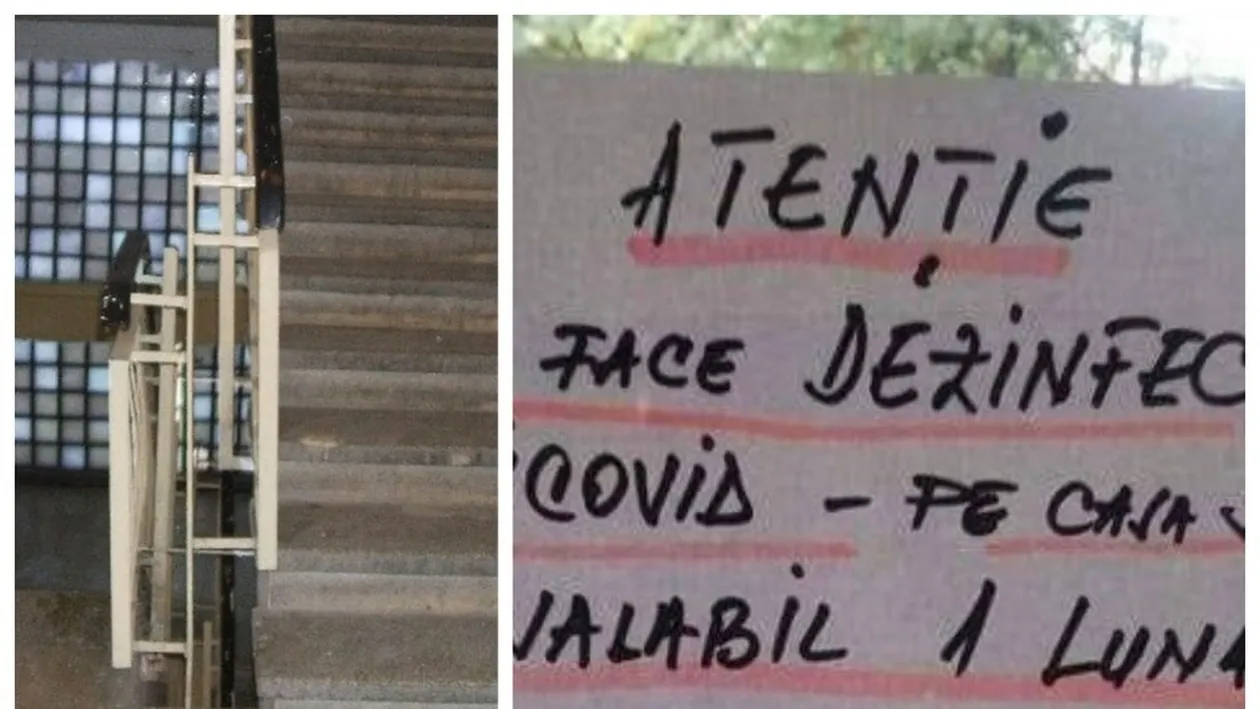 ATENTIE
FACE DEZINFEC
COVID - PE CASA
VALABIL 1 LUNA